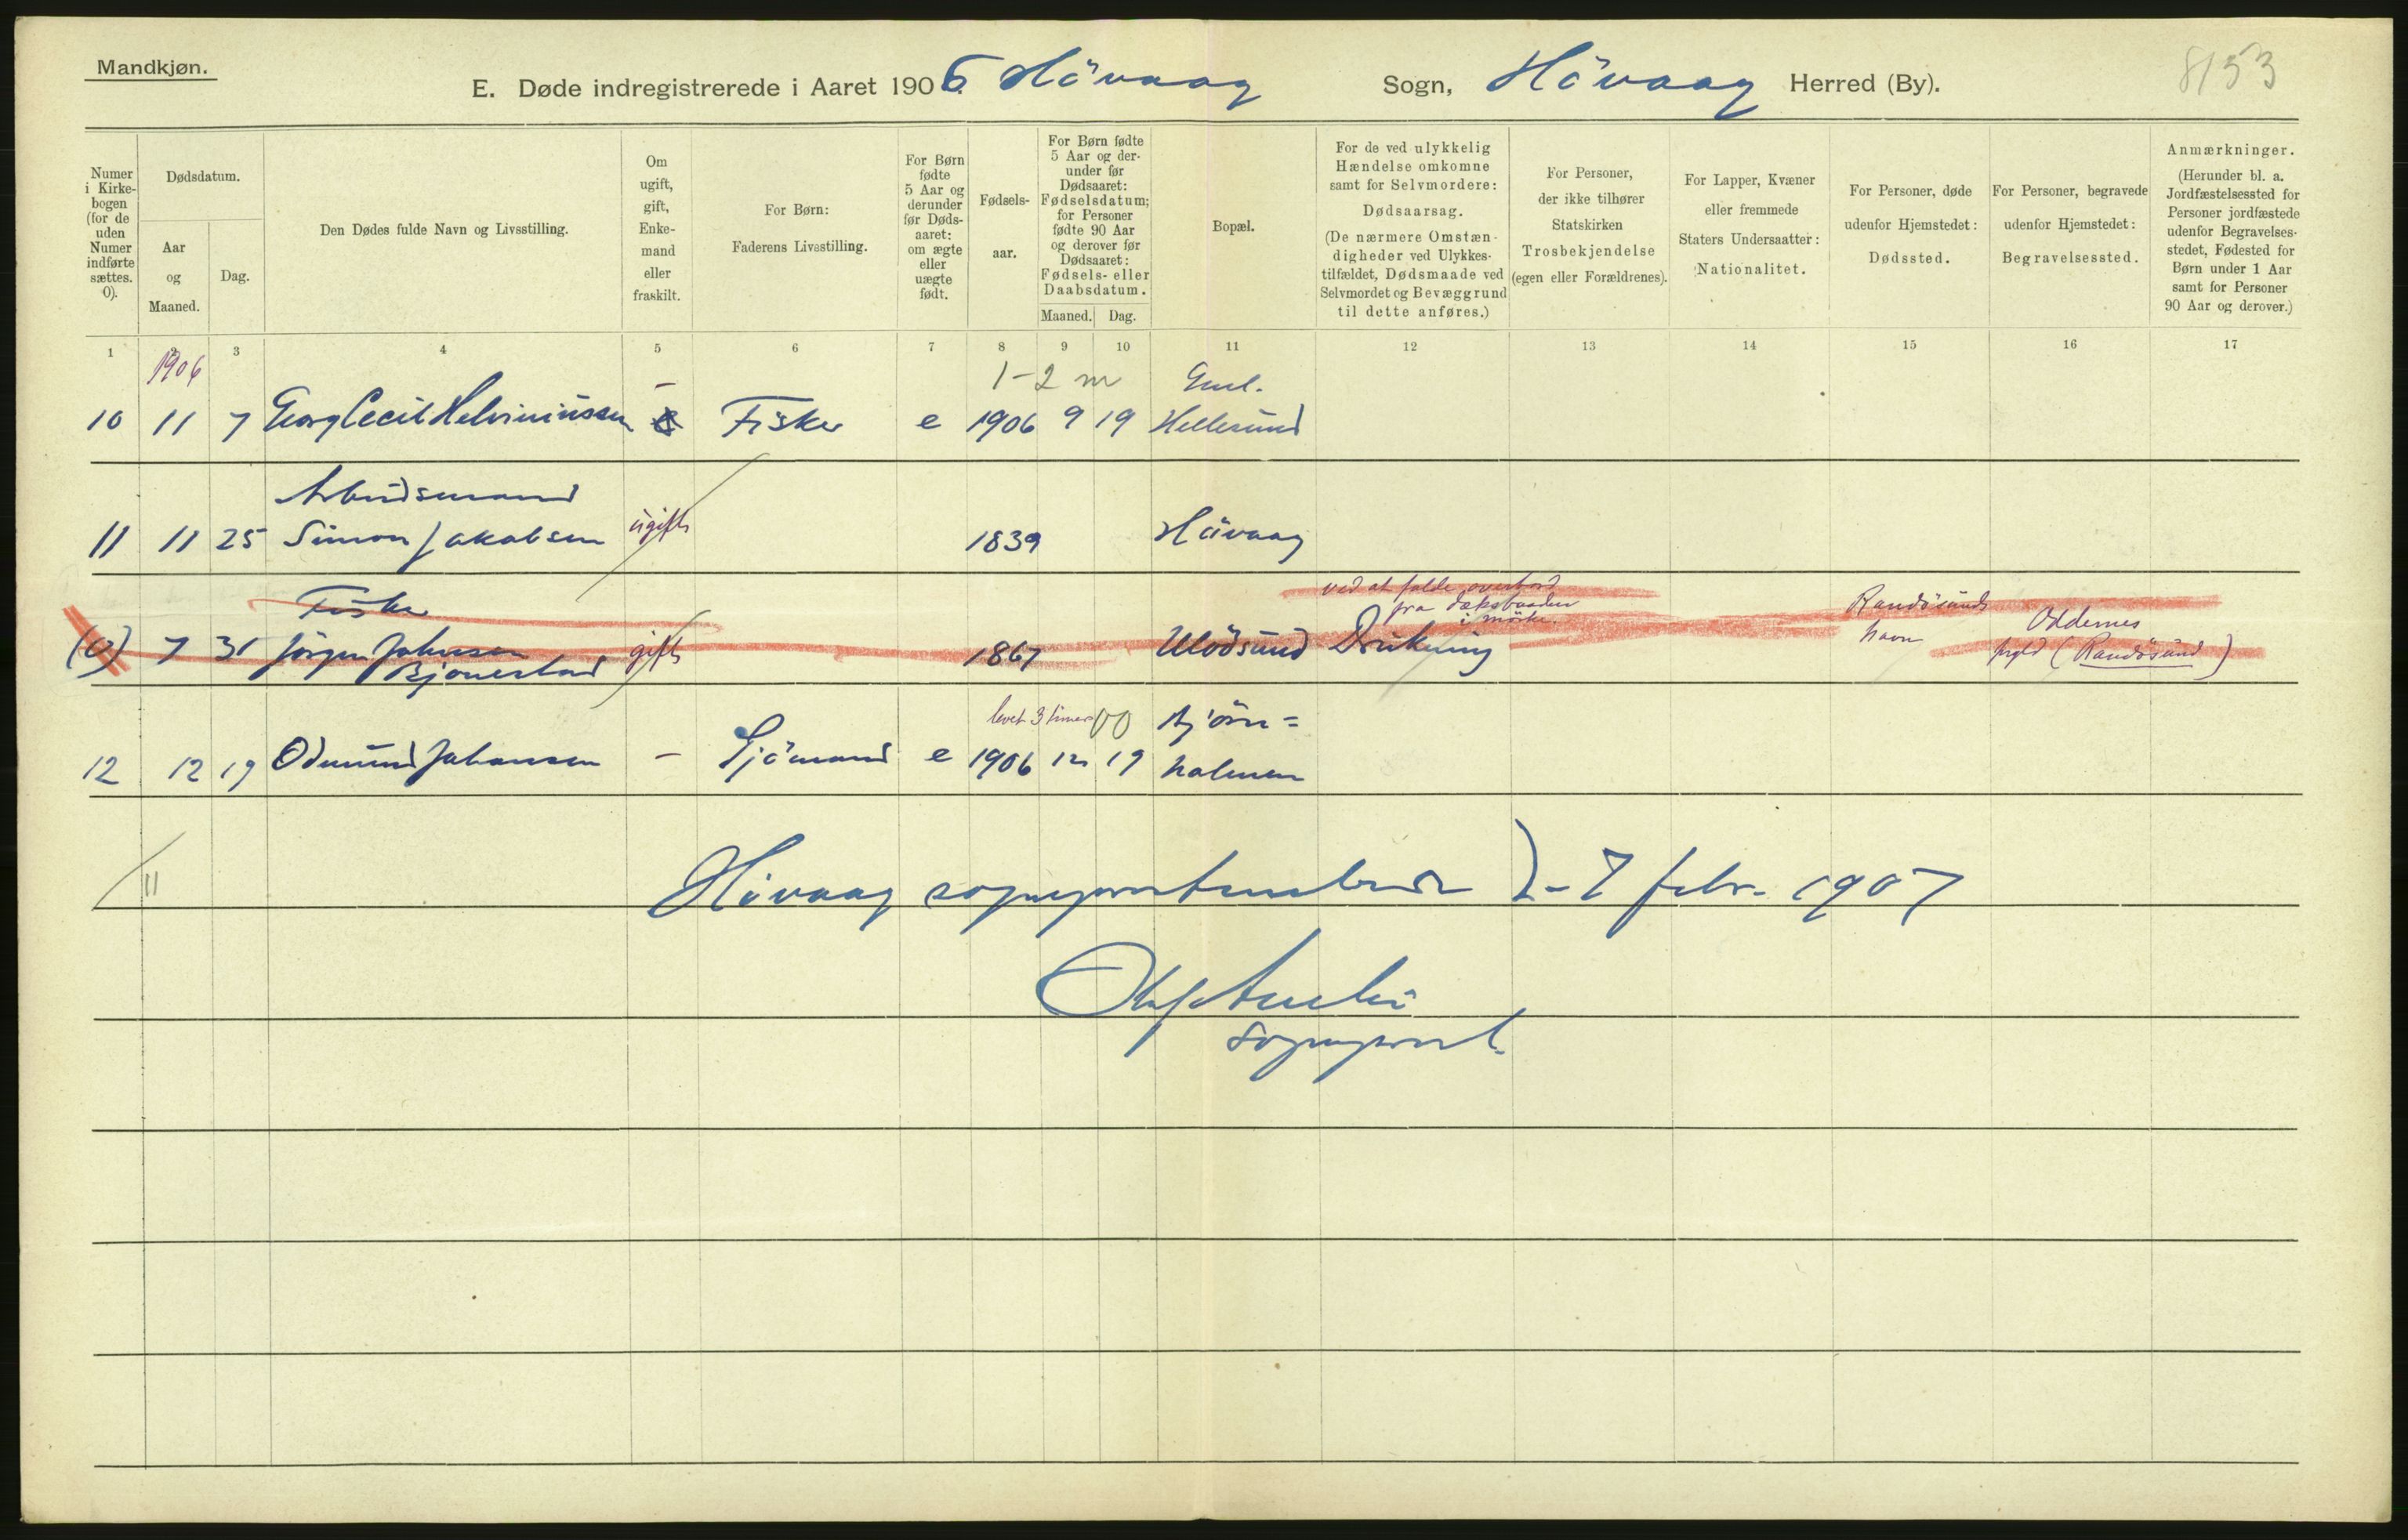 Mandkjøn.
E. Døde indregistrerede i Aaret 1906. Hövaag Sogn, Hövaag Herred (By).
8153
Numer i Kirkebogen (for de uden Numer indførte sættes. 0).
Dødsdatum.
Aar og Maaned.
Dag.
Den Dødes fulde Navn og Livsstilling.
Om ugift, gift, Enkemand eller fraskilt.
For Børn: Faderens Livsstilling.
For Børn fødte 5 Aar og derunder før Dødsaaret: om ægte eller uægte født.
Fødselsaar.
For Børn fødte 5 Aar og derunder før Dødsaaret: Fødselsdatum; for Personer fødte 90 Aar og derover før Dødsaaret: Fødsels- eller Daabsdatum.
Maaned. Dag.
Bopæl.
For de ved ulykkelig Hændelse omkomne samt for Selvmordere: Dødsaarsag. (De nærmere Omstændigheder ved Ulykkestilfældet, Dødsmaade ved Selvmordet og Bevæggrund til dette anføres.)
For Personer, der ikke tilhører Statskirken Trosbekjendelse (egen eller Forældrenes).
For Lapper, Kvæner eller fremmede Staters Undersaatter: Nationalitet.
For Personer, døde udenfor Hjemstedet: Dødssted.
For Personer, begravede udenfor Hjemstedet: Begravelsessted.
Anmærkninger. (Herunder bl. a. Jordfæstelsessted for Personer jordfæstede udenfor Begravelsesstedet, Fødested for Børn under 1 Aar samt for Personer 90 Aar og derover.)
1 2 3 4 5 6 7 8 9 10 11 12 13 14 15 16 17
1906 - 1-2 m
10 11 7 Georg Cecil Helviniussen Fisker e 1906 9 19 Hellesund
Arbeidsmand
11 11 25 Simon Jakobsen ugift 1839 Hövaag
Fisker ved at falde overbord fra dæksbaaden i mörke. Randösunds havn Oddernes
(0) 7 31 Jörgen Johnsen Bjonestad gift 1867 Ulösund Drukning prgld (Randösund)
levet 3 timer 00 Bjørn=
12 12 19 Odmund Johansen - Sjömand e 1906 12 19 holmen
11
Hövaag sogneprestembede 2-7 febr. 1907
sogneprest.